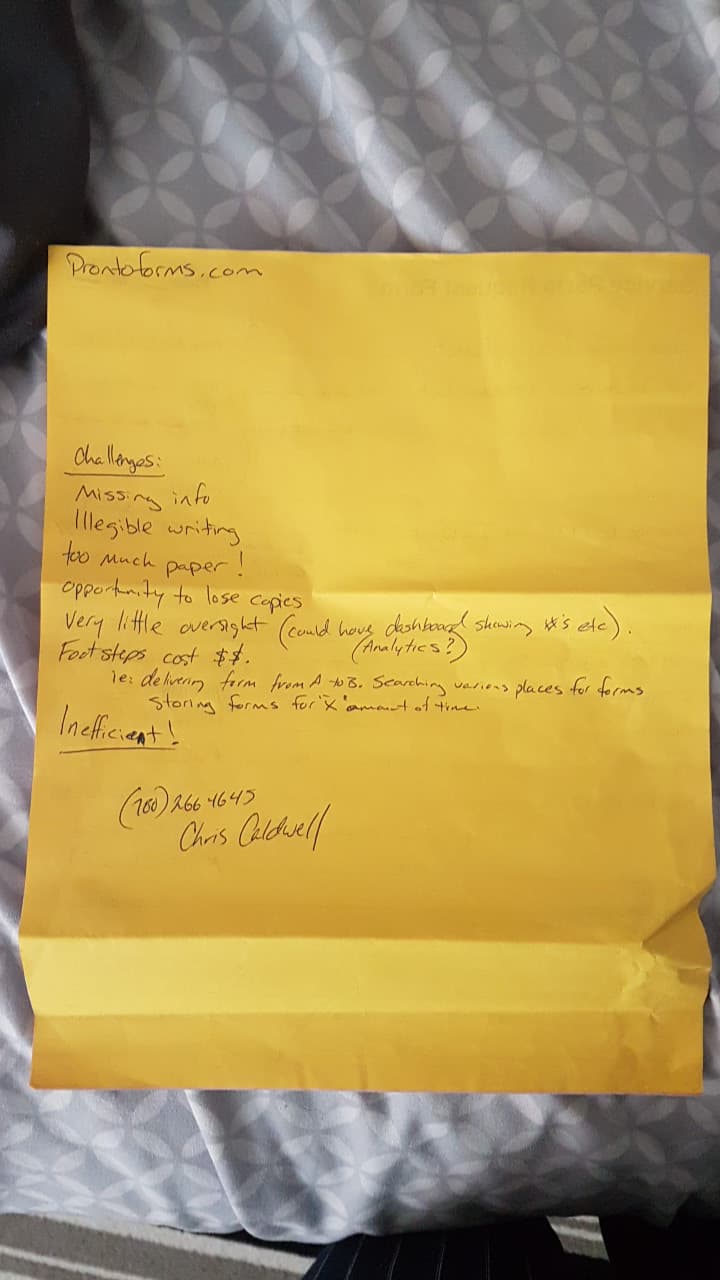 Prontoforms.com
Challenges:
Missing info
Illegible writing
too much paper!
opportunity to lose copies
Very little oversight (could have dashboard showing #'s etc).
(Analytics?)
Footsteps cost $$.
ie: delivering form from A to B. Searching various places for forms
storing forms for "X" amount of time.
Inefficient!
266 4645
Chris Caldwell